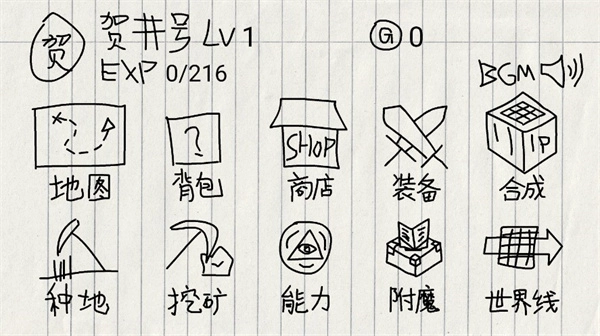 贺 贺井号 LV 1 G 0
EXP 0/216 BGM
? SHOP
地图 背包 商店 装备 合成
种地 挖矿 能力 附魔 世界线